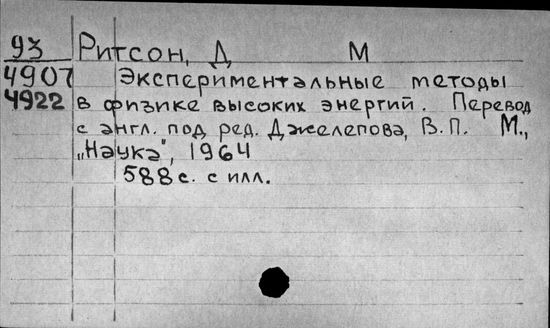 93 Ритсон, Д М
4907 Экспериментальные методы
4922 в физике высоких энергий. Перевод
с англ. под ред. Джелепова, В.П. М.,
„Наука", 1964
588 с. с илл.